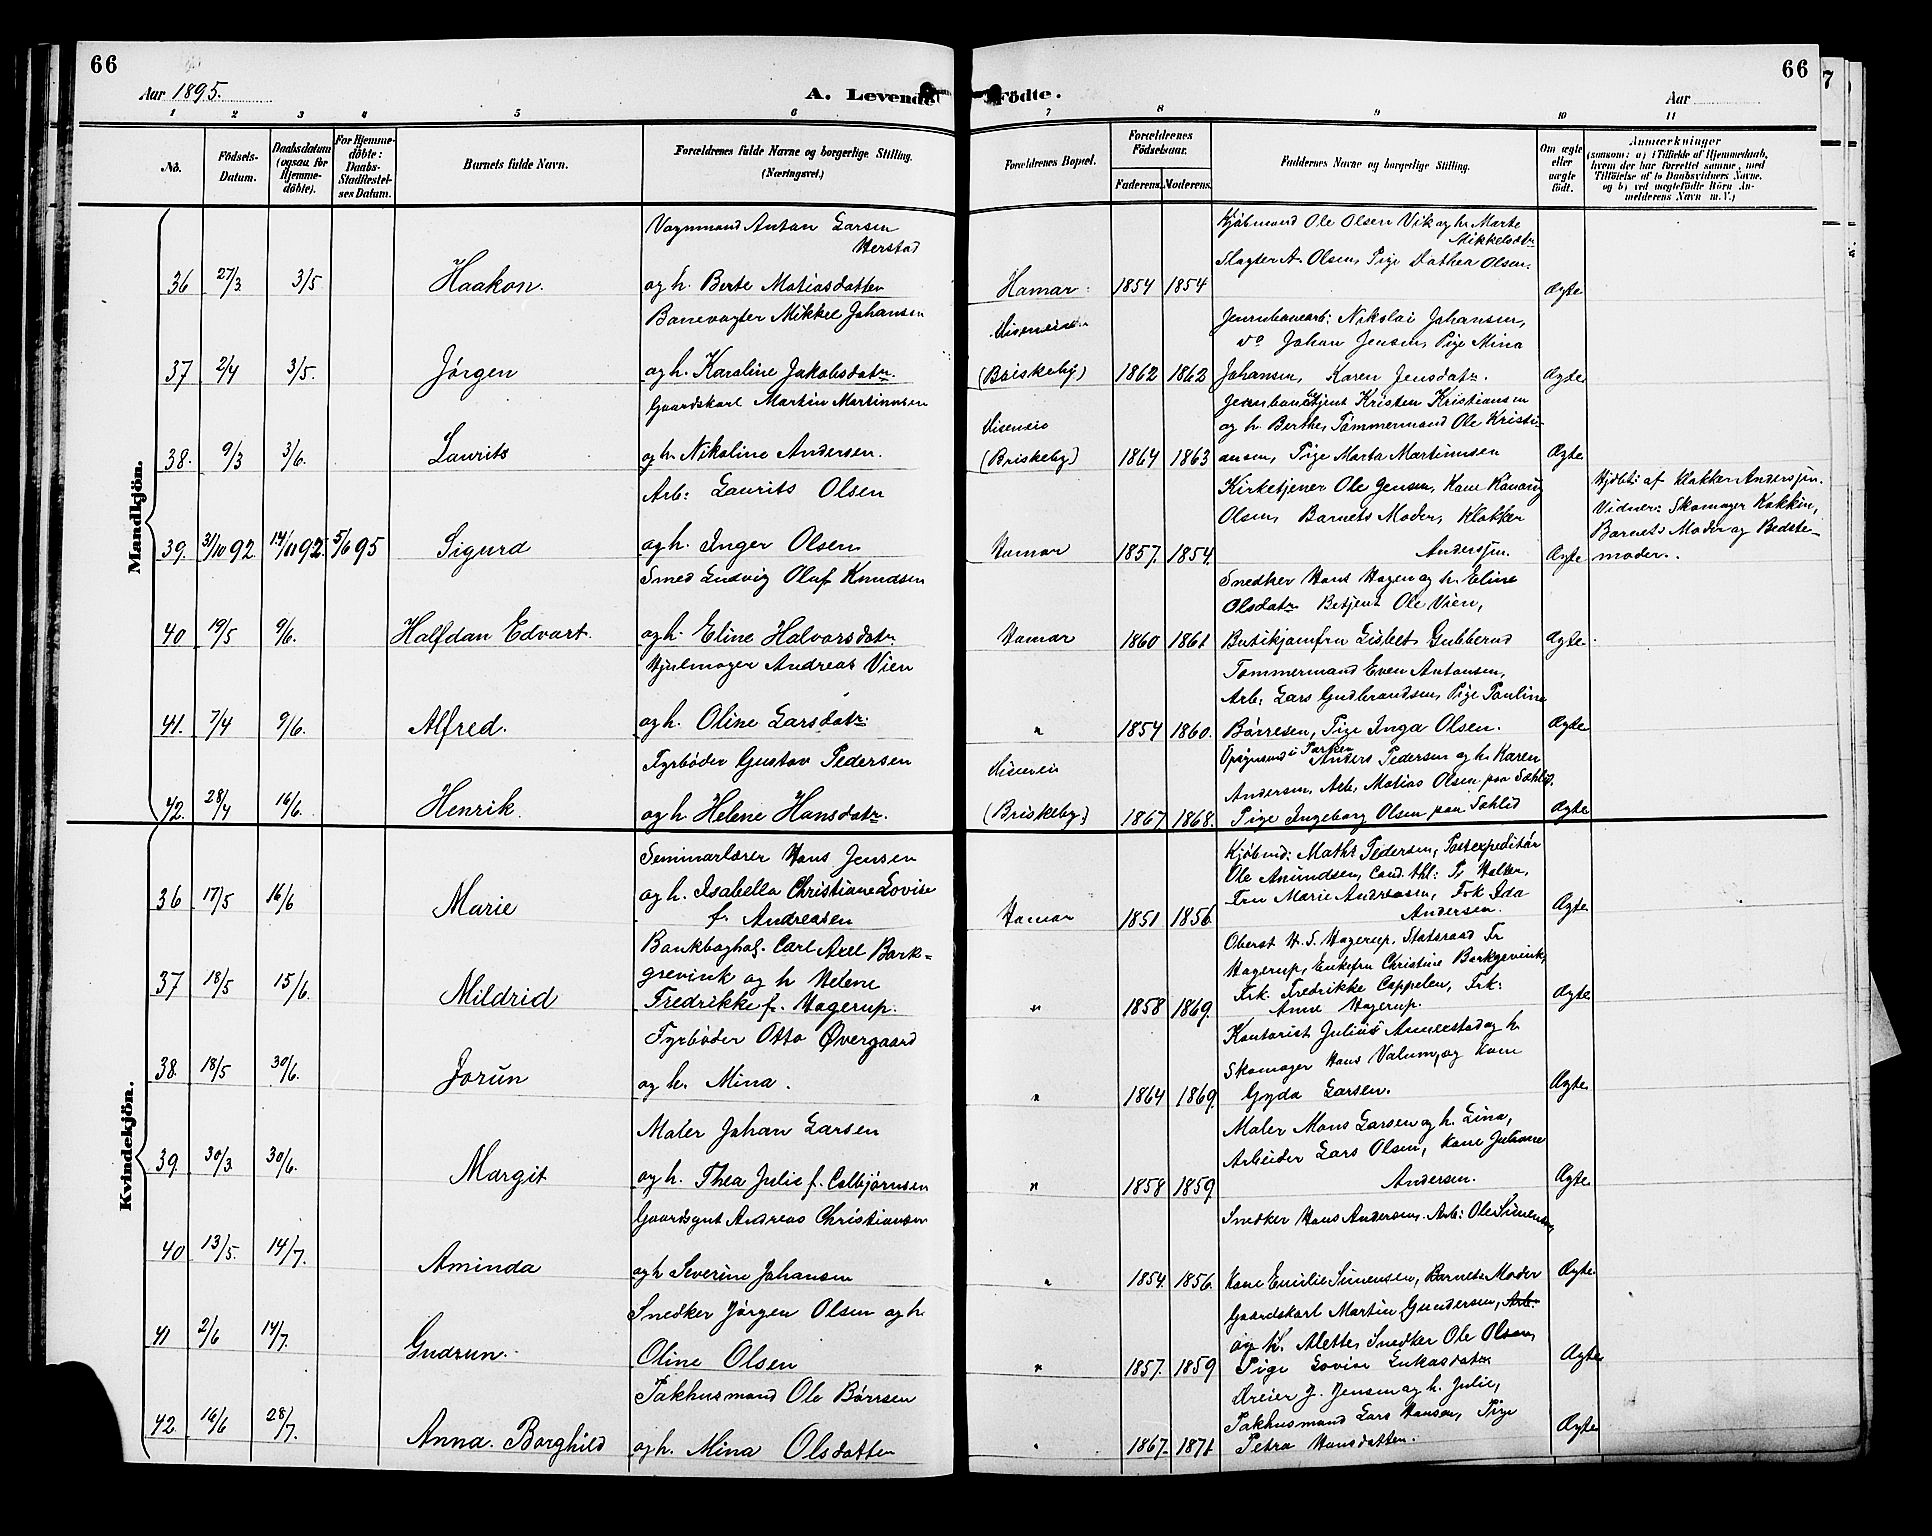 66
Aar 1895.
A. Levende
1 2 3 4 5 6
No.
Födsels-Datum.
Daabsdatum (ogsaa for Hjemmedöbte).
For Hjemmedöbte: Daabs-Stadfæstelses Datum.
Barnets fulde Navn.
Forældrenes fulde Navne og borgerlige Stilling.
(Næringsvei.)
Mandkjön.
Vognmand Anton Larsen
Herstad
36 27/3 3/5 Haakon. og h. Berte Matiasdatter
Banevogter Mikkel Johansen
37 2/4 3/5. Jørgen og h. Karoline Jakobsdatr.
Gaardskarl Martin Martinusen
38. 9/3 3/6. Laurits og h. Nikoline Andersen.
Arb: Laurits Olsen
39. 31/10 92. 14/11 92. 5/6 95 Sigurd og h. Inger Olsen
Smed Ludvig Oluf Knudsen
40 19/5 9/6. Halfdan Edvart. og h. Eline Halvorsdatr
Hjulmager Andreas Vien
41. 7/4 9/6. Alfred. og h. Oline Larsdatr.
Fyrbøder Gustav Pedersen
42. 28/4 16/6. Henrik. og h. Helene Hansdatr.
Kvindekjön.
Seminarlærer Hans Jensen
36 17/5 16/6 Marie og h. Isabella Christiane Lovise
f. Andreasen
Bankboghol. Carl Axel Bork=
37 18/5 15/6. Mildrid grevink og h Helene
Fredrikke f. Hagerup.
Fyrbøder Otto Øvergaard
38. 18/5 30/6. Jorun og h. Mina.
Maler Johan Larsen
39. 30/3. 30/6. Margit og h. Thea Julie f. Colbjørnsen
Gaardsgut Andreas Christiansen
40 13/5. 14/7. Aminda og h Severine Johansen
Snedker Jørgen Olsen og h.
41 2/6 14/7. Gudrun. Oline Olsen
Pakhusmand Ole Børrsen
42. 16/6 28/7. Anna. Borghild og h. Mina Olsdatter
Födte.
66
Aar
7 8 9 10 11
Forældrenes Bopæl.
Forældrenes Födselsaar.
Faderens. Moderens.
Faddernes Navne og borgerlige Stilling.
Om ægte eller uægte födt.
Anmærkninger
(saasom: a) i Tilfælde af Hjemmedaab,
hvem der har forrettet samme, med
Tilföielse af to Daabsvidners Navne,
og b) ved uægtefödte Börn An-
melderens Navn m. V.)
Kjøbmand Ole Olsen Vik og h. Marte
Mikkelsdtr
Slagter A. Olsen, Pige Dathea Olsen.
Hamar. 1854 1854 Ægte
Jernbanearb: Nikolai Johansen,
do Johan Jensen, Pige Mina
(Briskeby) 1862 1862 Johansen, Karen Jensdatr. Ægte
Jernbanebetjent Kristen Kristiansen
og h. Berthe, Tømmermand Ole Kristi-
(Briskeby) 1864 1863 ansen, Pige Marta Martinusen Ægte
Kirketjener Ole Jensen, Kone
Olsen, Barnets Moder, Klokker
Hamar 1857. 1854. Anderssen. Ægte
Hjdbt: af Klokker Anderssen.
Vidner: Skomager Kokkin,
Barnets Moder og Bedste-
moder.
Snedker Hans Hagen og h. Eline
Olsdatr Betjent Ole Vien,
Hamar 1860 1861 Butikjomfru Lisbet Gubberud Ægte.
Tømmermand Even Antonsen,
Arb. Lars Gudbrandsen, Pige Pauline
" 1854 1860. Børresen, Pige Inga Olsen. Ægte
Opsynsmd i Parken Anders Pedersen og h. Karen
Andersen, Arb. Matias Olsen paa Sæhlid,
(Briskeby) 1867 1868. Pige Ingeborg Olsen paa Sæhlid Ægte
Kjøbmd: Maths Pedersen, Postexpeditør
Ole Amundsen, Cand. thl: P.
Fru Marie Andreasen, Frk Ida
Hamar 1851 1856 Andersen. Ægte.
Oberst H. S. Hagerup, Statsraad Fr
Hagerup, Enkefru Christine Borkgevink,
" 1858 1869. Frk. Fredrikke Cappelen, Frk: Ægte
Anna Hagerup.
Kontorist Julius Annerstad og h.
Skomager Hans Valum, og Kone
" 1864 1869. Gyda Larsen. Ægte
Maler Mons Larsen og h. Lina,
Arbeider Lars Olsen, Kone Juliane
" 1858 1859 Andersen. Ægte
Snedker Hans Andersen, Arb: Ole Simensen,
" 1854. 1856. Kone Emilie Simensen, Barnets Moder Ægte
Gaardskarl Martin Gundersen,
og h. Alette, Snedker Ole Olsen,
" 1857. 1859 Pige Lovise Lukasdatr Ægte
Dreier J. Jensen og h. Julie,
Pakhusmand Lars Hansen, Pige
" 1867. 1871 Petra Hansdatter. Ægte